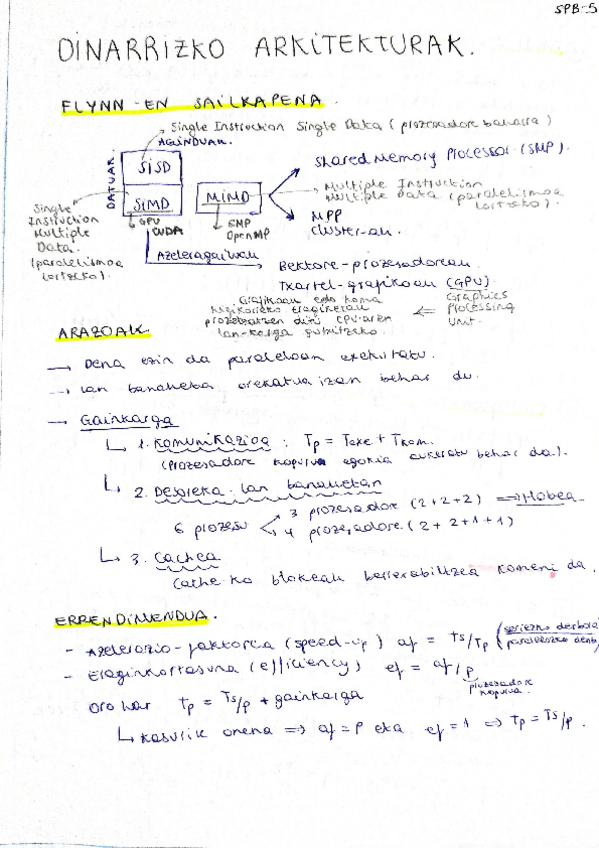 SPB-5
OINARRIZKO ARKITEKTURAK.
FLYNN-EN SAILKAPENA.
Single Instruction Single Data (prozesadore bakarra)
AGINDUAK.
DATUAK.
SISD
SIMD
MIMD
Shared Memory Processor (SMP).
Multiple Instruction
Multiple Data (paralelismoa
lortzeko).
MPP
Cluster-ak.
Single
Instruction
Multiple
Data.
(paralelismoa
lortzeko).
GPU
CUDA
SMP
OpenMP
Azeleragailuak
Bektore-prozesadoreak.
Txartel-grafikoak (GPU)
Graphics
Processing
Unit.
Grafikoak edo koma
higikorreko eragiketak
prozesatzen ditu CPU-aren
lan-karga gutxitzeko.
ARAZOAK.
→ Dena ezin da paraleloan exekutatu.
→ lan banaketa orekatua izan behar du.
→ Gainkarga
↳ 1. Komunikazioa: Tp = Texe + Tkom.
(prozesadore kopurua egokia aukeratu behar da.).
↳ 2. Desoreka lan banaketan
6 prozesu
3 prozesadore (2+2+2) ⇒ Hobea
4 prozesadore (2+2+1+1)
↳ 3. Cachea
Cache-ko blokeak berrerabiltzea komeni da.
ERRENDIMENDUA.
- Azelerazio-faktorea (speed-up) af = Ts/Tp (serieko denbora
paraleloko denb
- Eraginkortasuna (efficiency) ef = af/p
prozesadore
kopurua.
Oro har tp = Ts/p + gainkarga
↳ kasurik onena ⇒ af = P eta ef = 1 ⇒ tp = Ts/p.